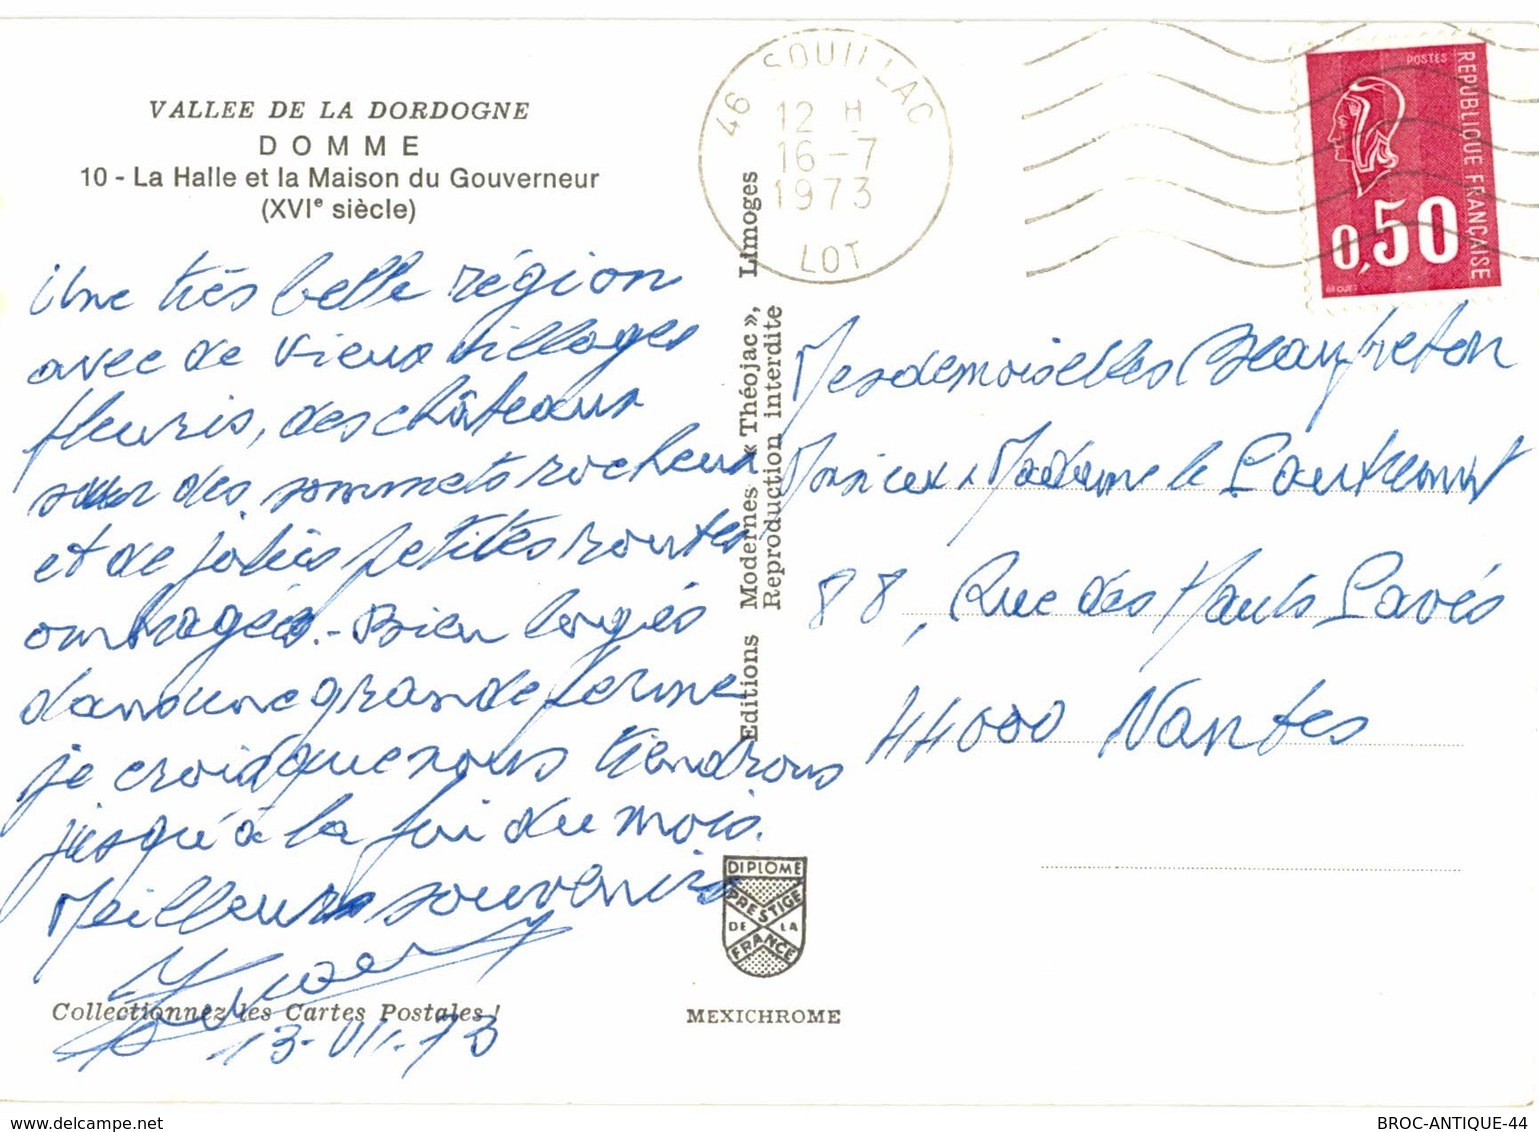 VALLEE DE LA DORDOGNE
DOMME
10 - La Halle et la Maison du Gouverneur
(XVIe siècle)
Une très belle région
avec de vieux villages
fleuris, des châteaux
sur des sommets rocheux
et de jolies petites routes
ombragées. - Bien logés
dans une grande ferme
je crois que nous tiendrons
jusqu'à la fin du mois.
Meilleurs souvenirs
13-VII-73
Collectionnez les Cartes Postales !
Editions Modernes « Théojac », Limoges
Reproduction interdite
DIPLOME
PRESTIGE
DE LA
FRANCE
MEXICHROME
46 SOUILLAC
12 H
16-7
1973
LOT
POSTES
REPUBLIQUE FRANÇAISE
0,50
BEQUET
Mesdemoiselles Beaufreton
Monsieur & Madame le
88, Rue des Hauts Pavés
44000 Nantes
BROC-ANTIQUE-44